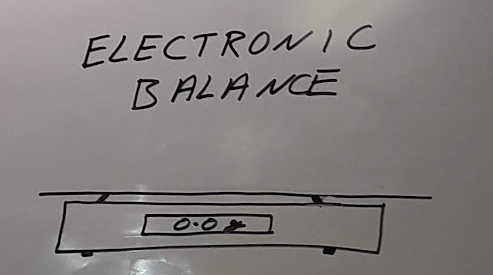 ELECTRONIC
BALANCE
0.0 g